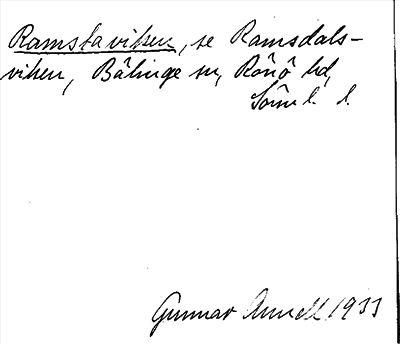 Ramstaviken, se Ramsdals-
viken, Bälinge sn, Rönö hd,
Söml. l.
Gunnar Annell 1933